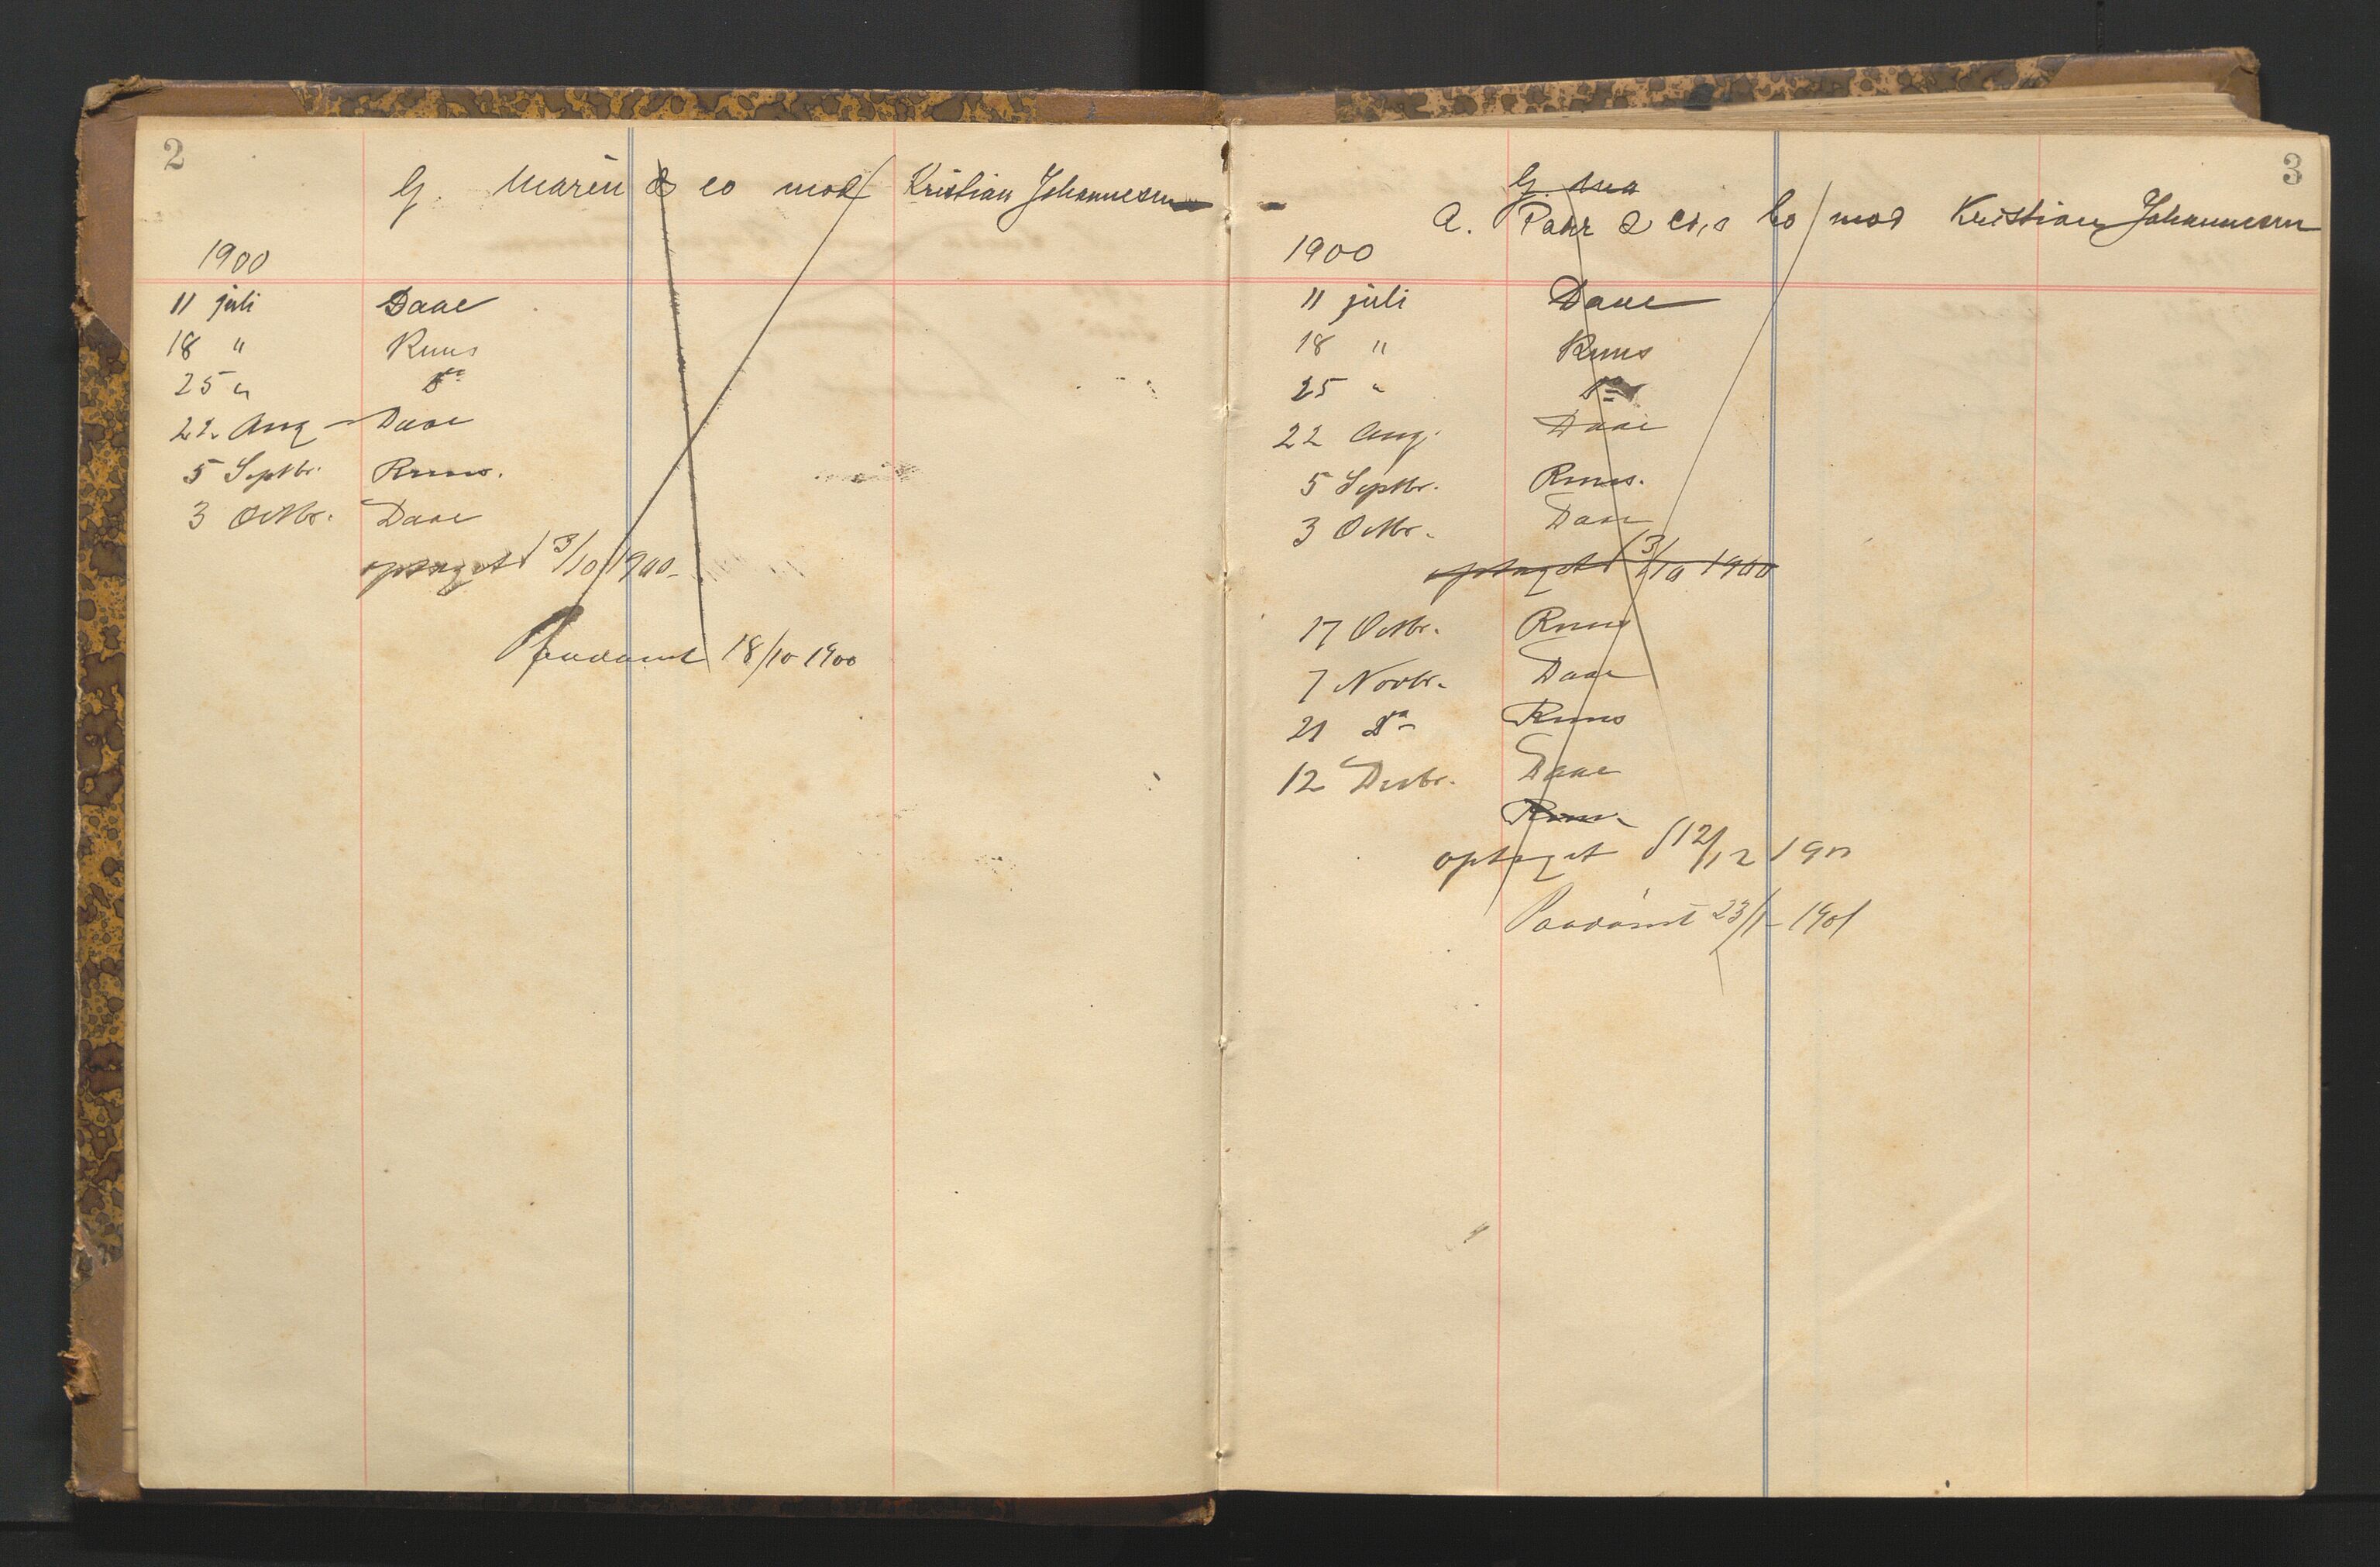 2
G. Marin & co mod Kristian Johannesen
1900
11 juli Daae
18 " Ruus
25 " Do
22. Aug - Daae
5 Septbr. Ruus.
3 Octbr. Daae
optaget d 3/10 1900.
Paadømt 18/10 1900
3
G. Ma
A. Pahr & co,s bo mod Kristian Johannesen
1900
11 juli Daae
18 " Ruus
25 " Do
22 Aug. Daae
5 Septbr. Ruus.
3 Octbr. Daae
optaget d 3/10 1900
17 Octbr. Ruus
7 Novbr. Daae
21 Do Ruus
12 Decbr. Daae
Ruus.
optaget d 12/12 1900
Paadømt 23/1 - 1901